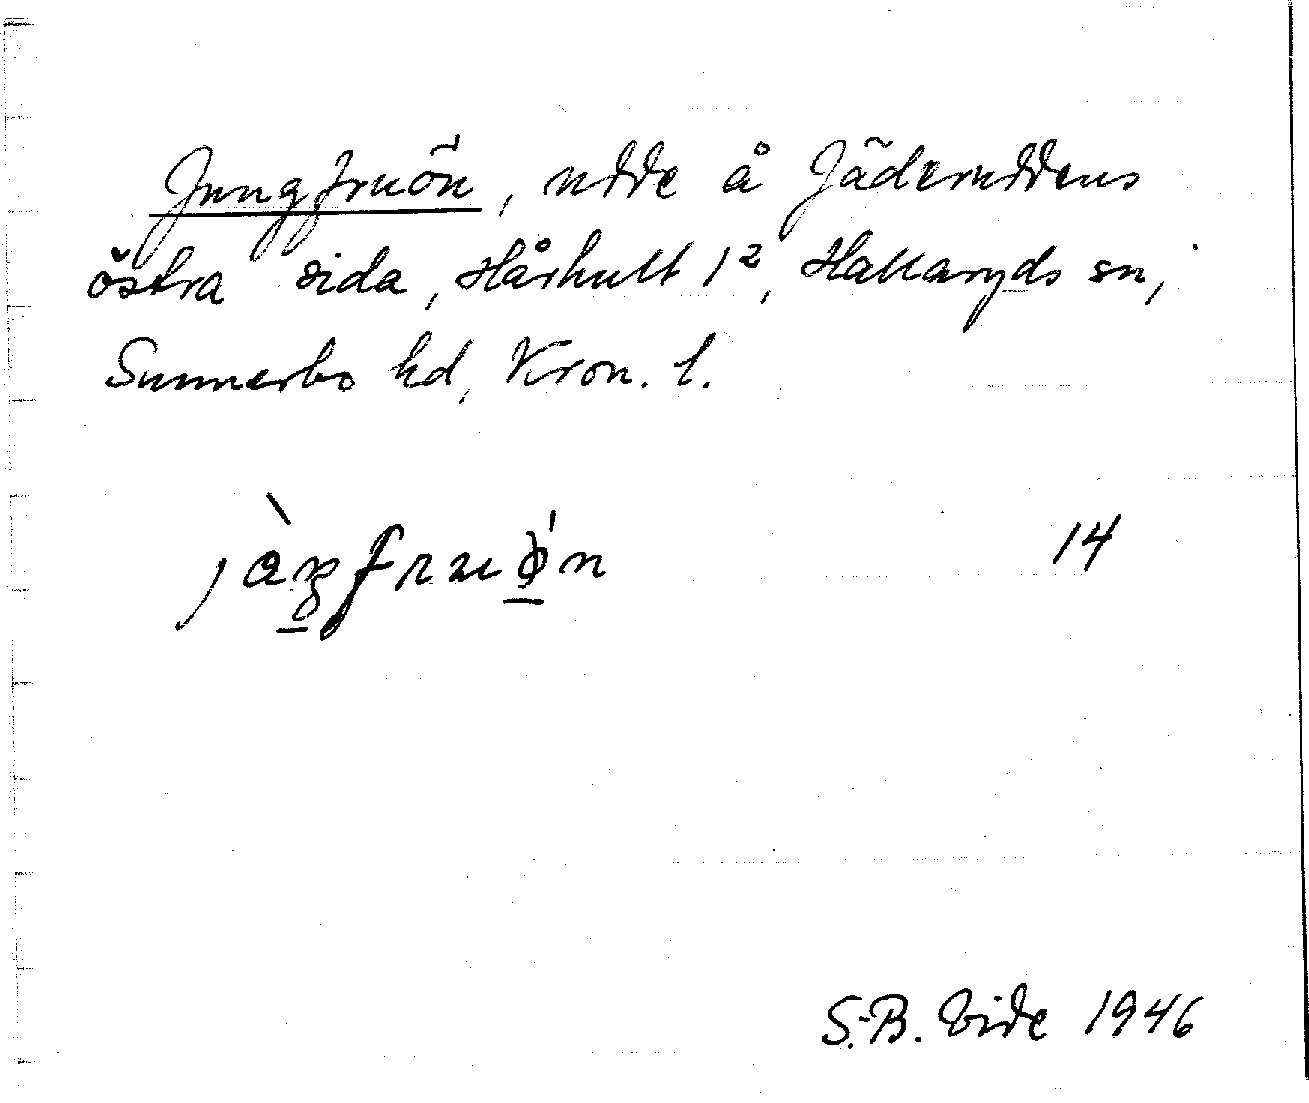 Jungfruön, udde å Jäderuddens
östra sida, Hårhult 1², Hallaryds sn,
Sunnerbo hd, Kron. l.
14
S.-B. Vide 1946